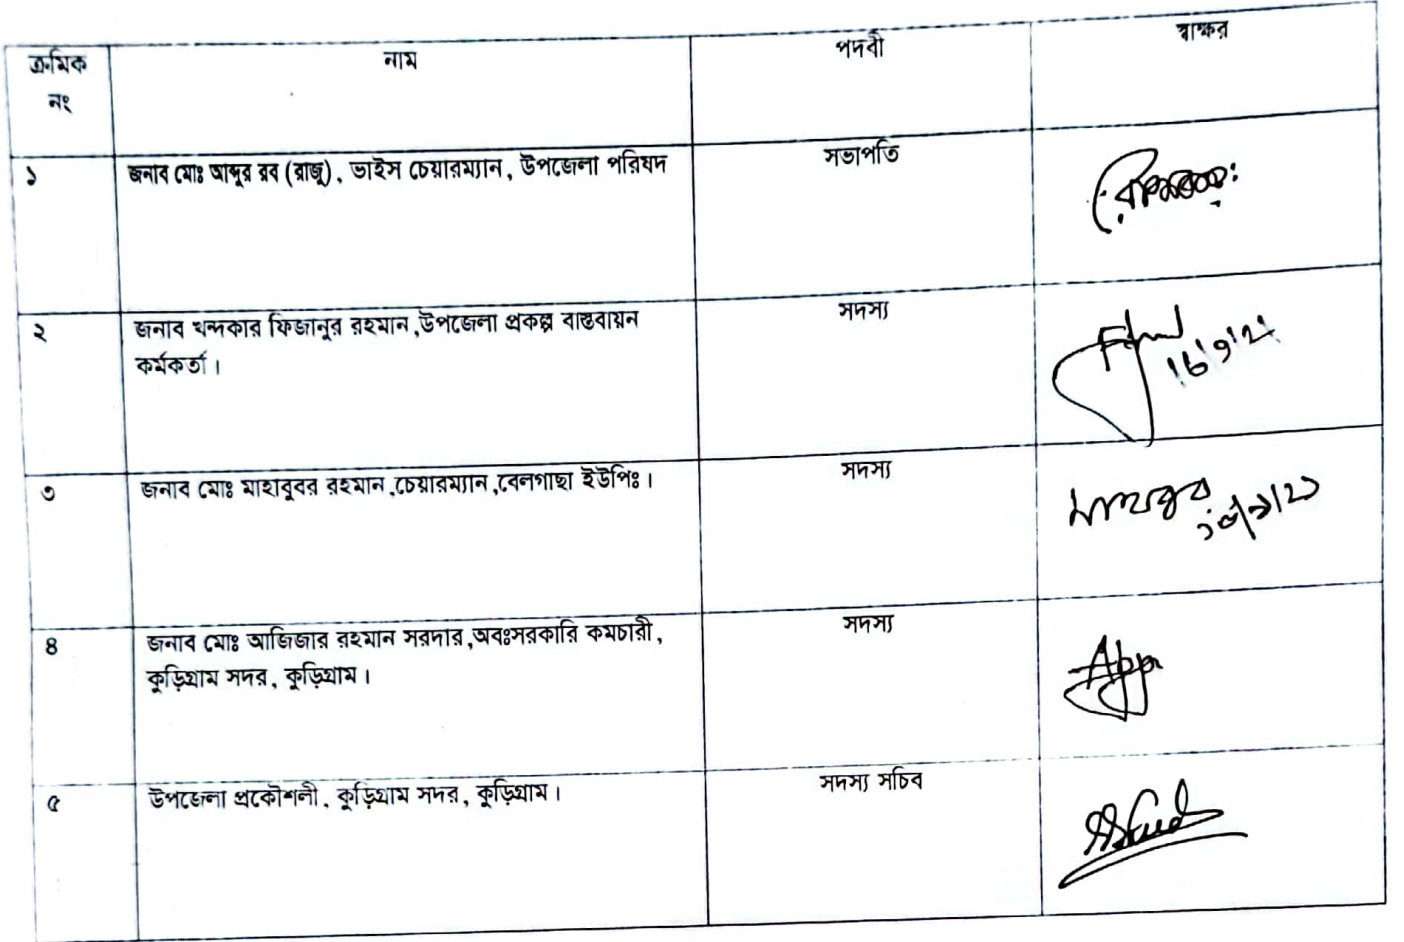 ক্রমিক নং
নাম
পদবী
স্বাক্ষর
১
জনাব মোঃ আব্দুর রব (রাজু), ভাইস চেয়ারম্যান, উপজেলা পরিষদ
সভাপতি
২
জনাব খন্দকার ফিজানুর রহমান,উপজেলা প্রকল্প বাস্তবায়ন
কর্মকর্তা।
সদস্য
৩
জনাব মোঃ মাহাবুবর রহমান,চেয়ারম্যান,বেলগাছা ইউপিঃ।
সদস্য
৪
জনাব মোঃ আজিজার রহমান সরদার,অবঃসরকারি কমচারী,
কুড়িগ্রাম সদর, কুড়িগ্রাম।
সদস্য
৫
উপজেলা প্রকৌশলী, কুড়িগ্রাম সদর, কুড়িগ্রাম।
সদস্য সচিব